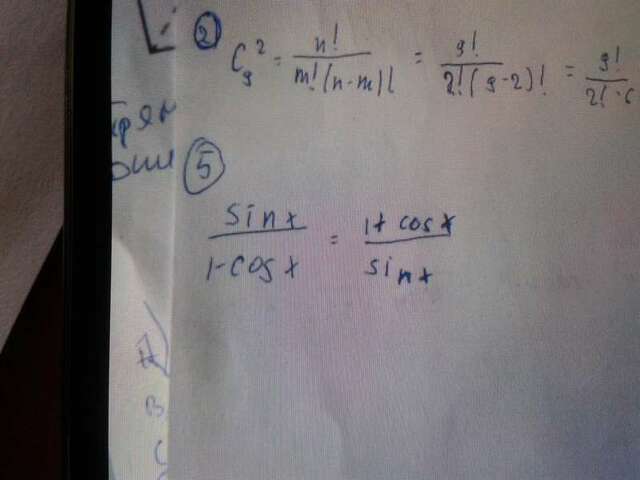 2
C₉² = n! / m!(n-m)! = 9! / 2!(9-2)! = 9! / 2!·
5
sin x / 1-cos x = 1+cos x / sin x
В
С